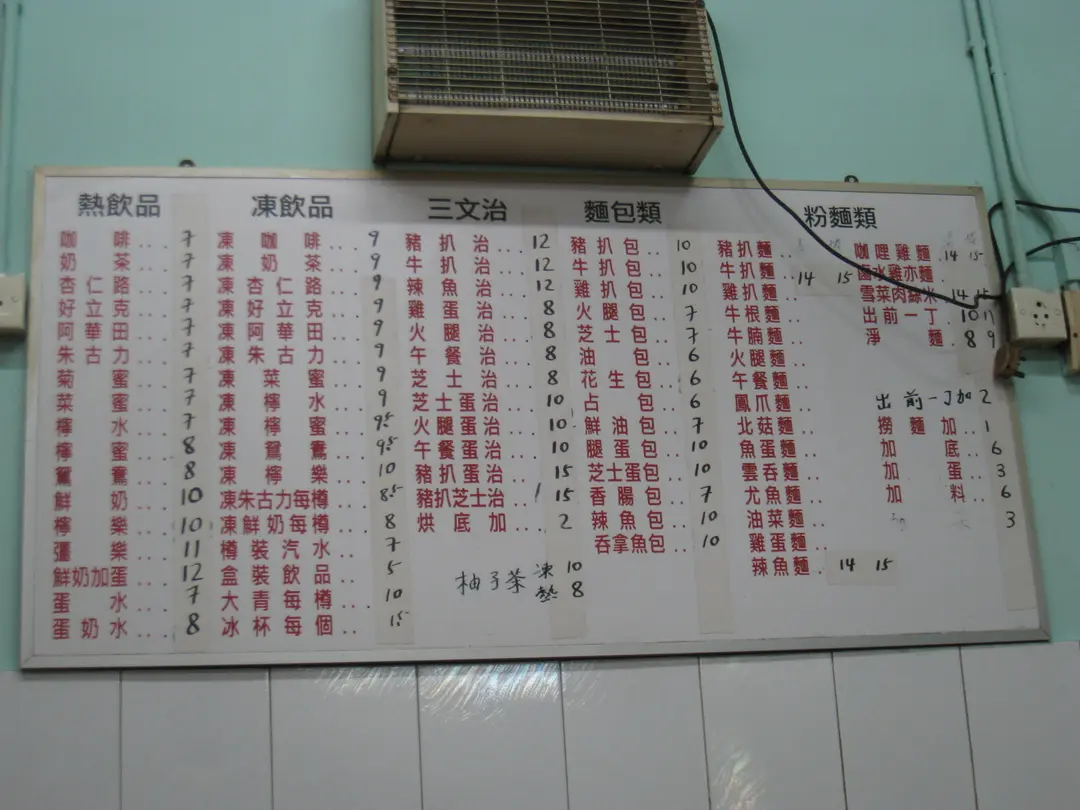 熱飲品
咖啡... 7
奶茶... 7
杏仁路... 7
好立克... 7
阿華田... 7
朱古力... 7
菊蜜... 7
菜蜜... 7
檸水... 7
檸蜜... 8
鴛鴦... 8
鮮奶... 10
檸樂... 10
彊樂... 11
鮮奶加蛋... 12
蛋水... 7
蛋奶水... 8
凍飲品
凍咖啡... 9
凍奶茶... 9
凍杏仁路... 9
凍好立克... 9
凍阿華田... 9
凍朱古力... 9
凍菜蜜... 9
凍檸水... 9
凍檸蜜... 95
凍鴛鴦... 95
凍檸樂... 10
凍朱古力每樽 85
凍鮮奶每樽 8
樽裝汽水.. 7
盒裝飲品.. 5
大青每樽... 10
冰杯每個.. 15
三文治
豬扒治... 12
牛扒治... 12
辣魚治... 12
雞蛋治... 8
火腿治... 8
午餐治... 8
芝士治... 8
芝士蛋治.. 10
火腿蛋治.. 10
午餐蛋治.. 10
豬扒蛋治.. 15
豬扒芝士治.. 15
烘底加.. 2
柚子茶 凍 10
熱 8
麵包類
豬扒包 10
牛扒包.. 10
雞扒包.. 10
火腿包.. 7
芝士包.. 7
油包.. 6
花生包.. 6
占包.. 6
鮮油包.. 7
腿蛋包.. 10
芝士蛋包.. 10
香腸包.. 7
辣魚包.. 10
吞拿魚包.. 10
粉麵類
豬扒麵
牛扒麵.. 14 15
雞扒麵
牛根麵
牛腩麵..
火腿麵
午餐麵
鳳爪麵..
北菇麵..
魚蛋麵..
雲吞麵..
尤魚麵..
油菜麵..
雞蛋麵..
辣魚麵. 14 15
咖哩雞麵.. 14 15
雪菜肉絲米 14 15
出前一丁 10 11
淨麵.. 8 9
出前一丁加 2
撈麵加.. 1
加底... 6
加蛋.. 3
加料.. 6
3